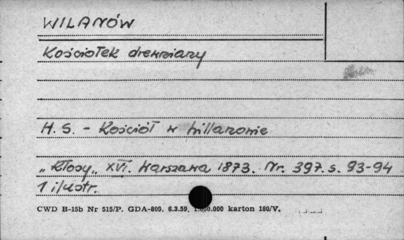 WILANÓW
Kościołek drewniany
H. S. - Kościół w Willanowie
"Kłosy" XVI. Warszawa 1873. Nr. 397. s. 93-94
1 ilustr.
CWD B-15b Nr 515/P. GDA-805. 6.3.59. .000 karton 180/V.